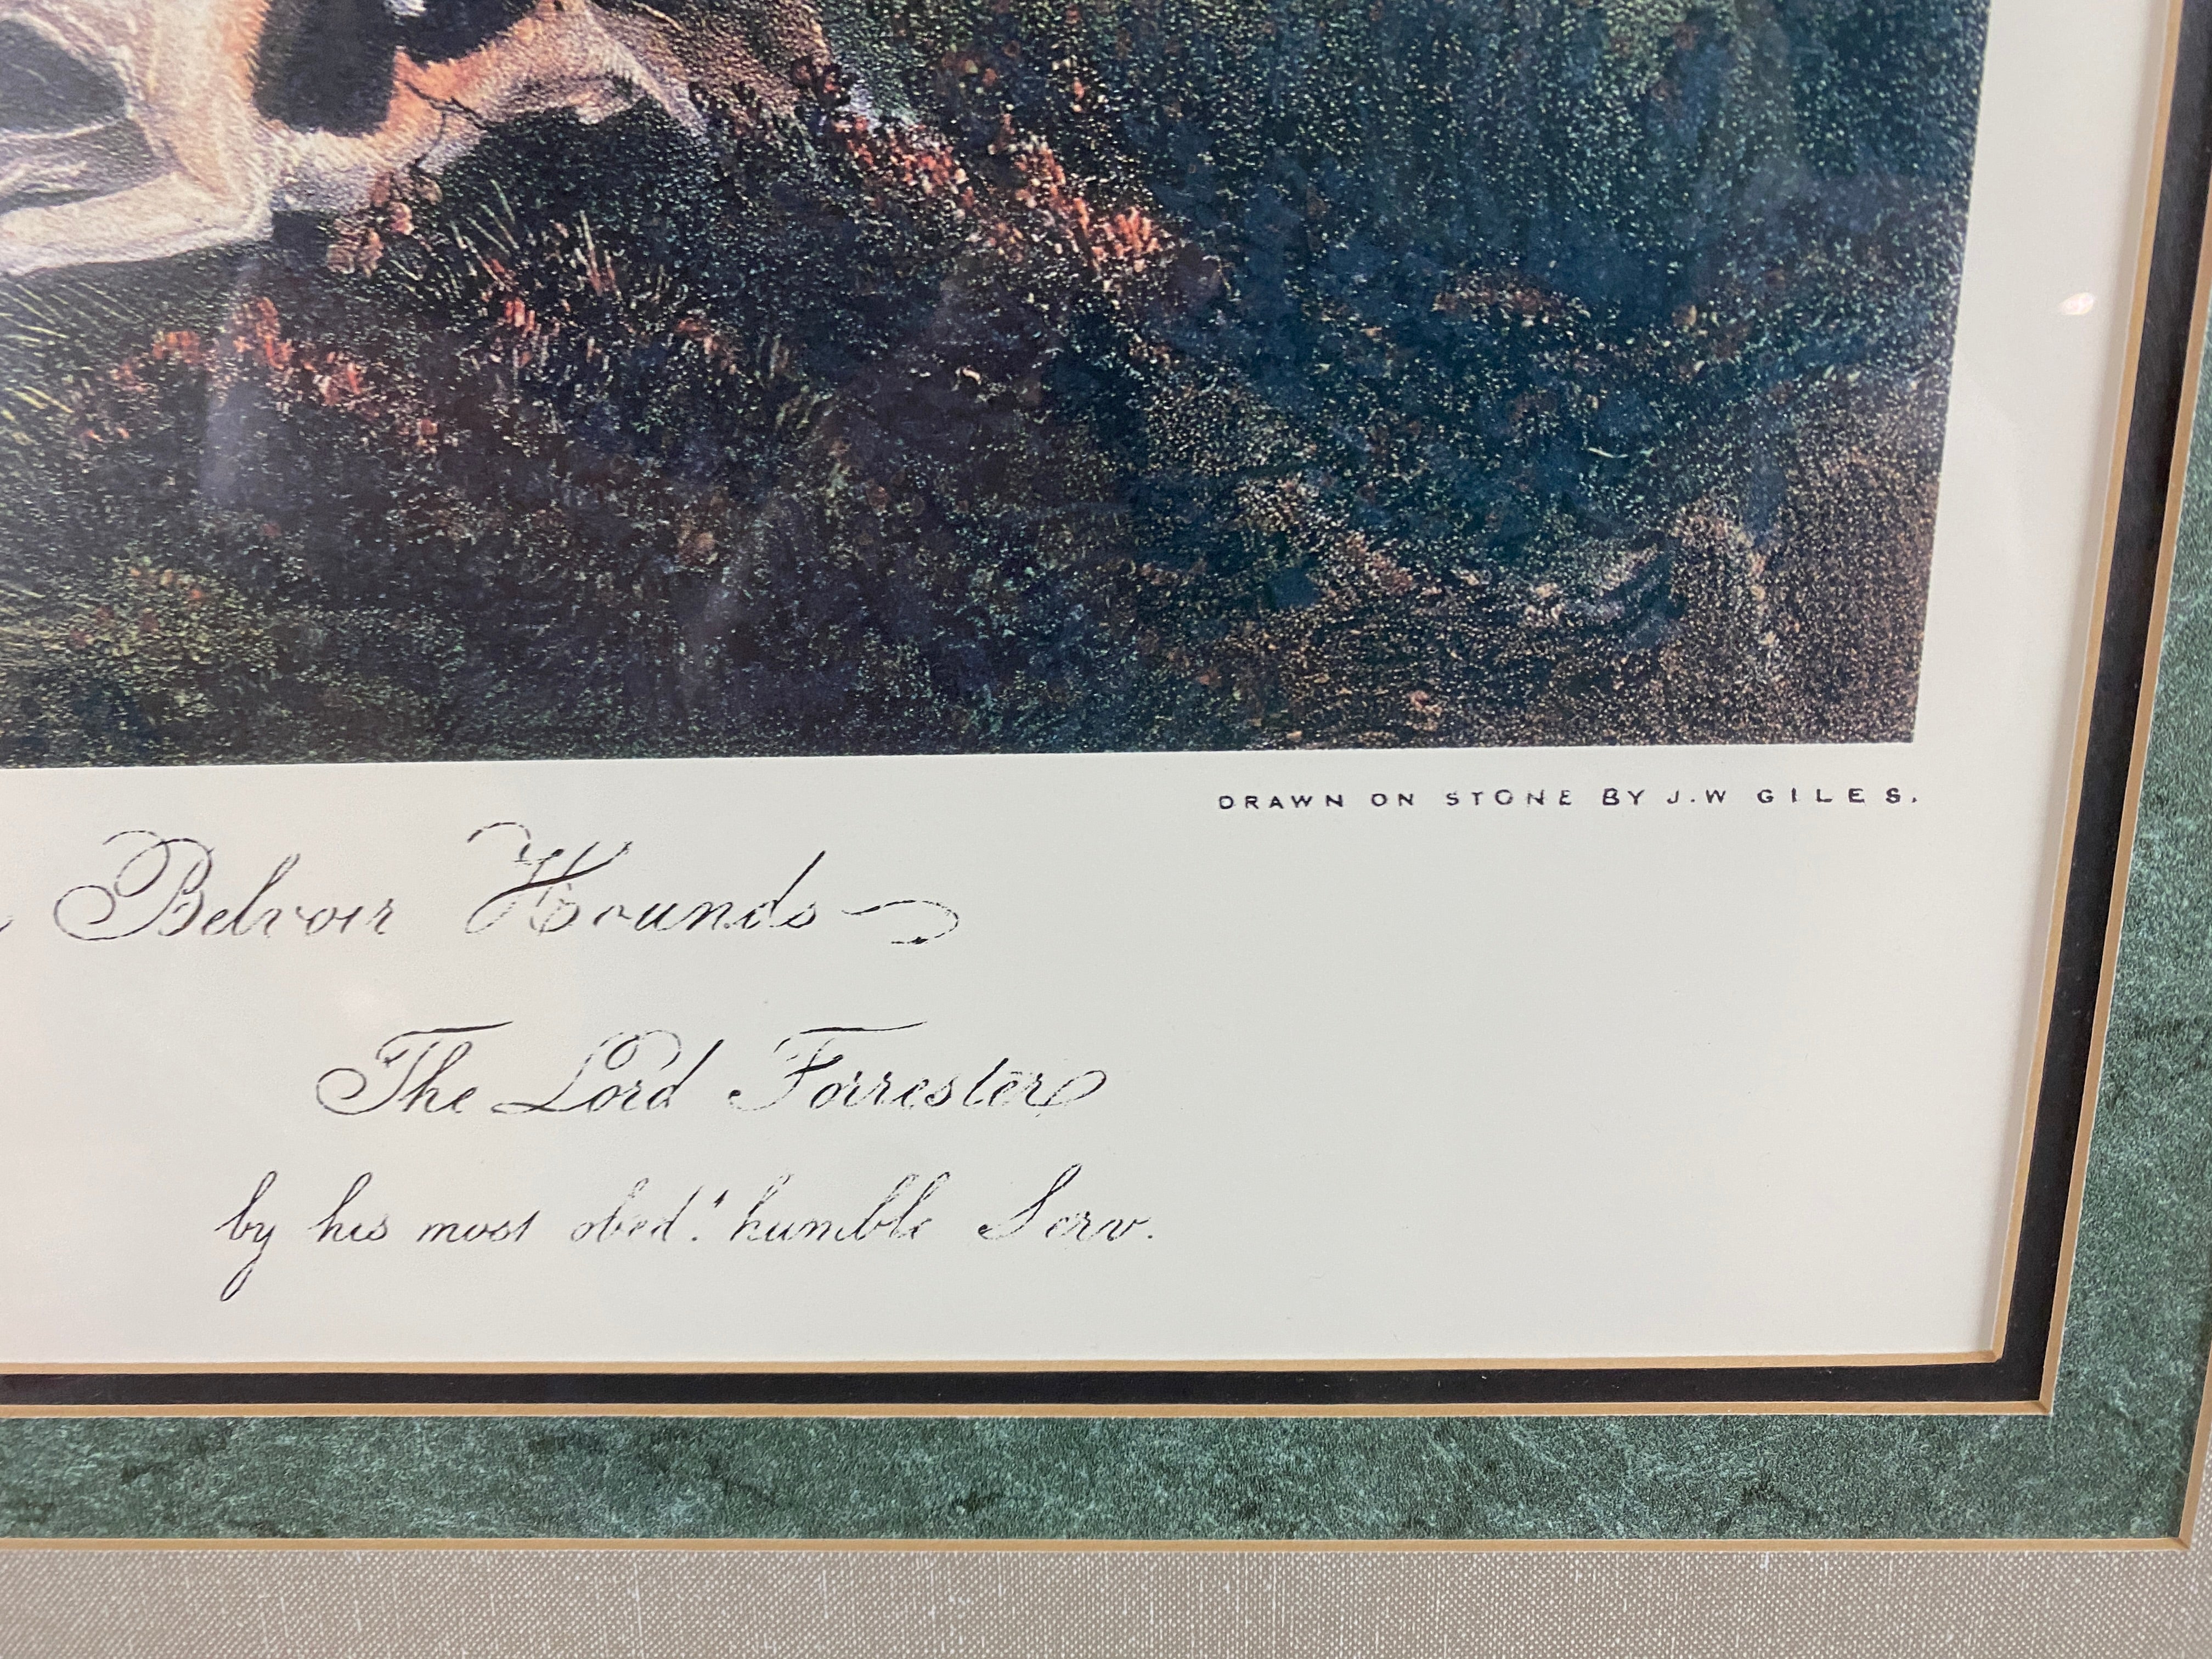 DRAWN ON STONE BY J.W GILES.
Belvoir Hounds
The Lord Forrester
by his most obed.t humble Serv.